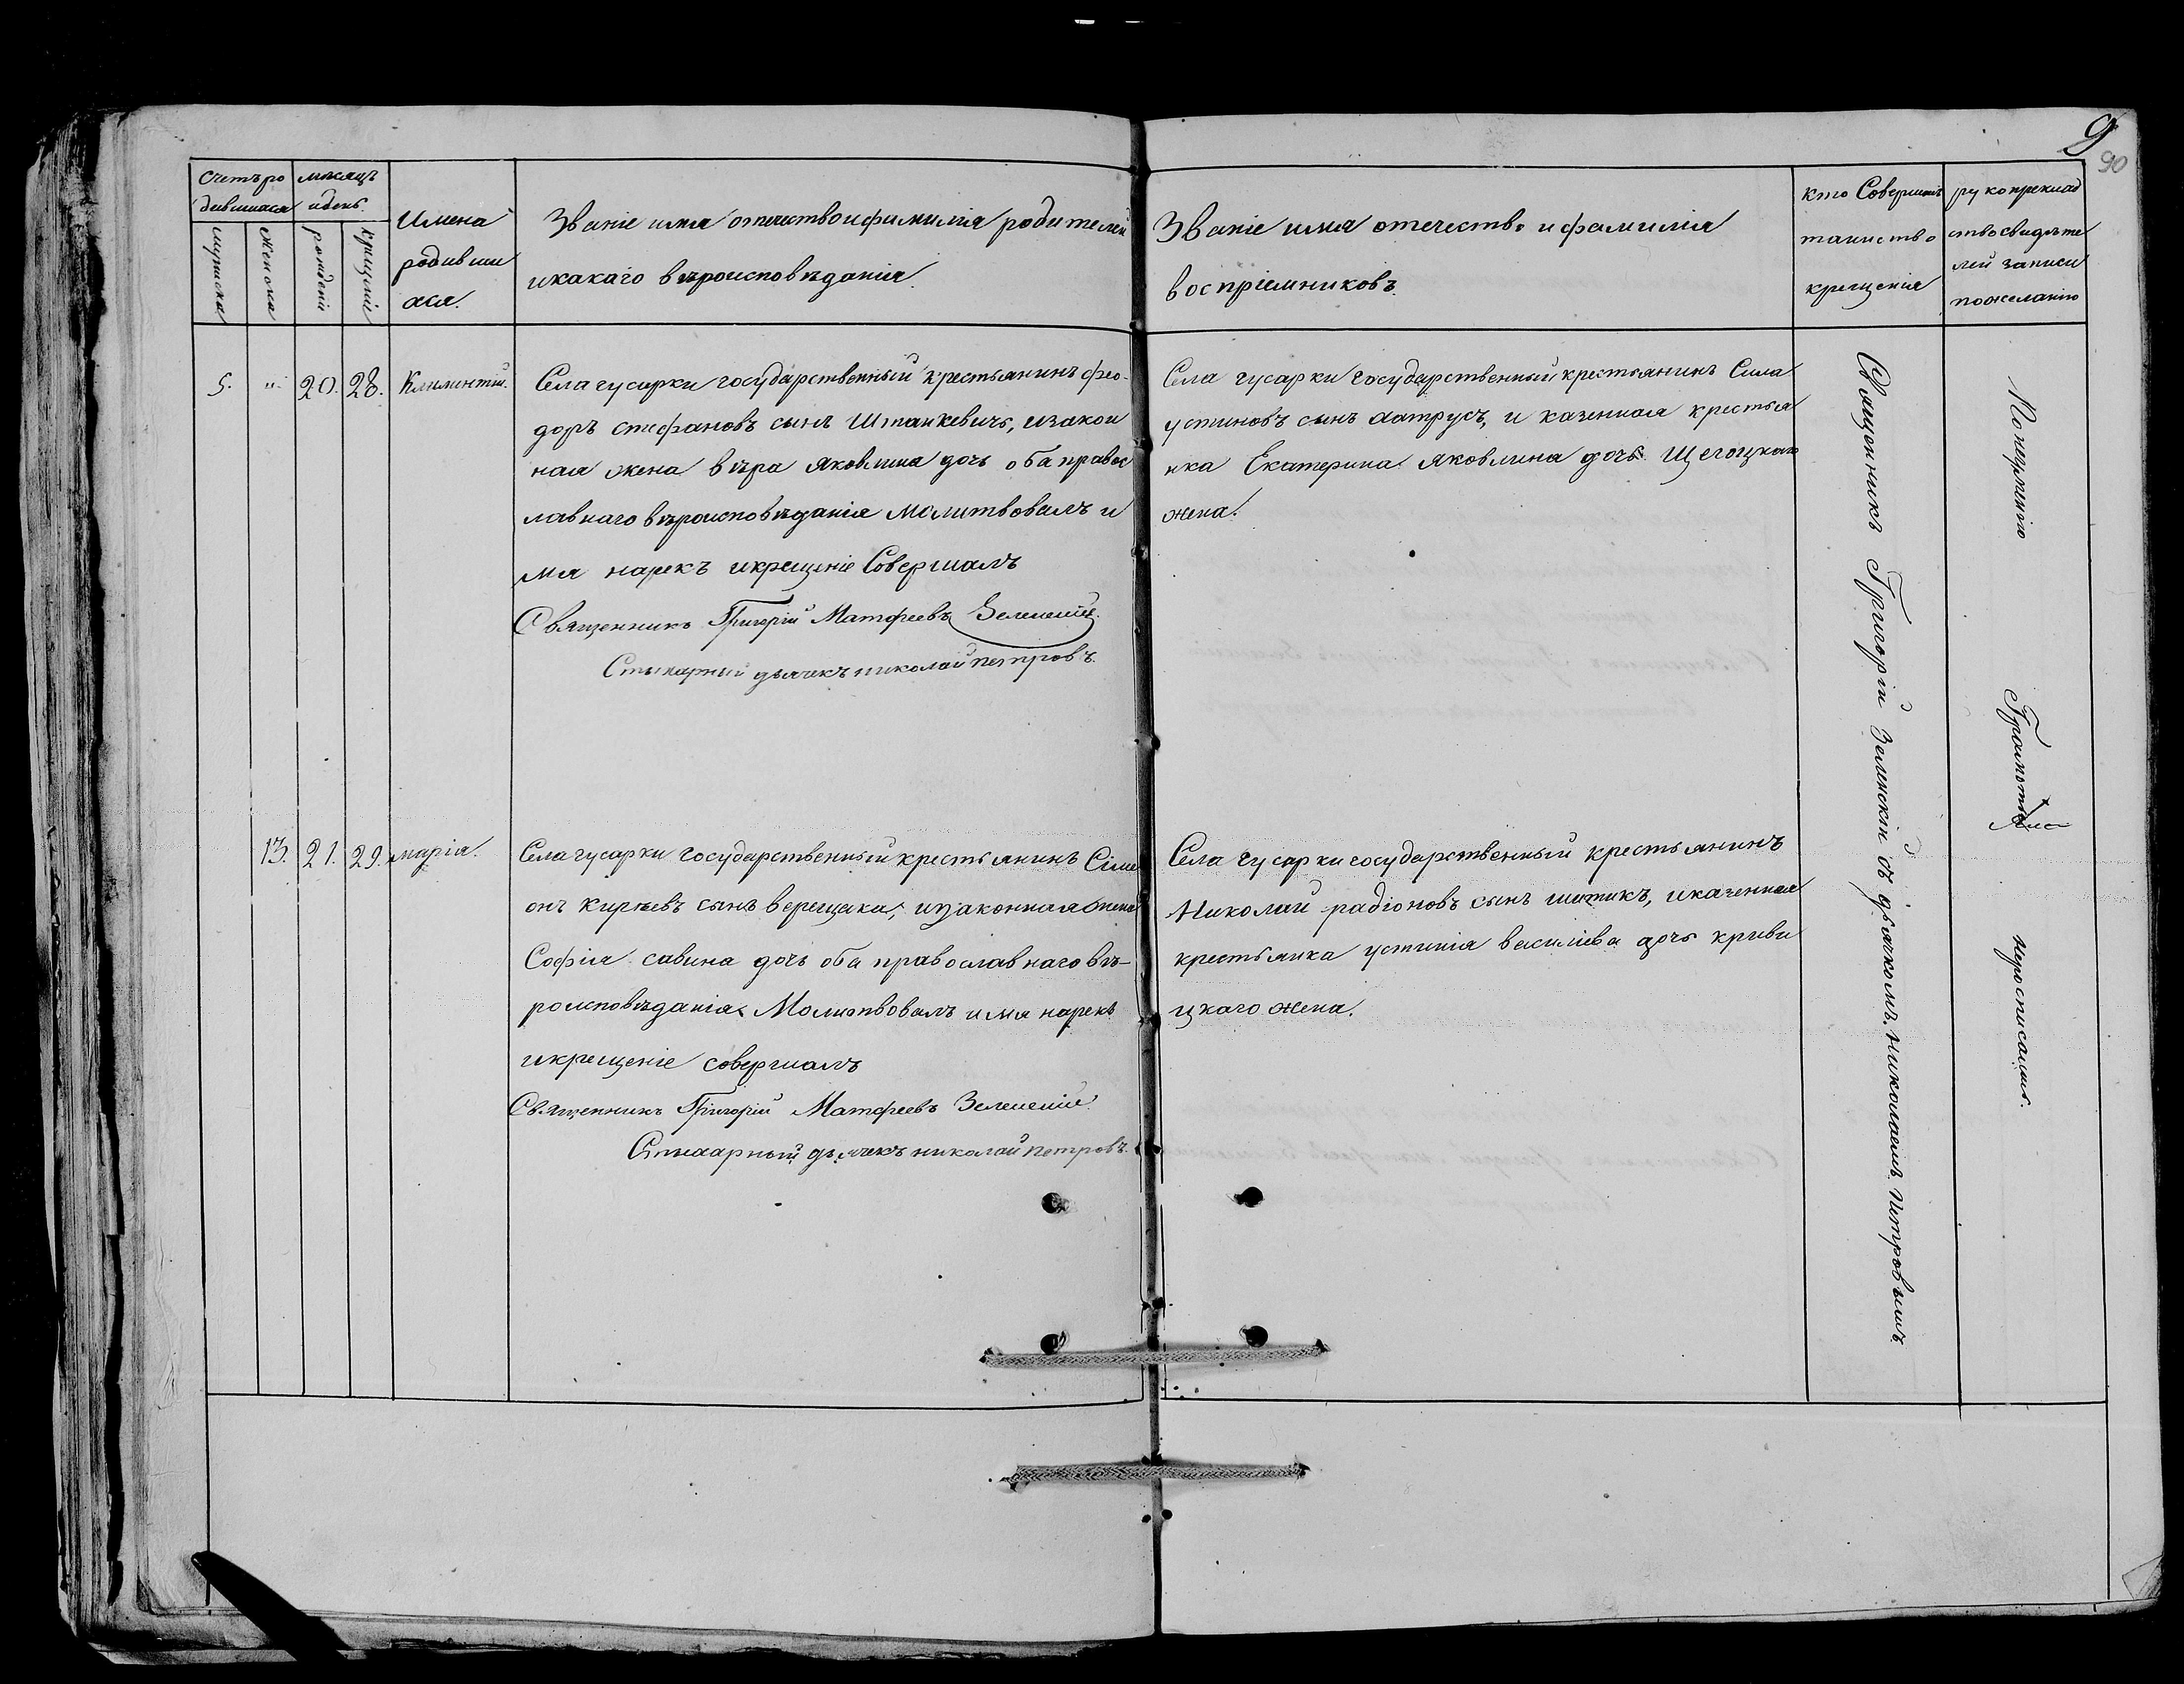 9
90
Счетъ ро
дившихся
мужеска
женска
мѣсяцъ
и день.
рожденія
крещенія
Имена
родивши
хся.
Званіе имя отечество и фамилія родителей
и какаго вѣроисповѣданія.
Званіе имя отечество и фамилія
воспріемниковъ.
кто Совершалъ
таинство
крещенія
рукоприклад
ство свидѣте
лей записи
по желанію
5. " 20. 28. Климентій.
Села гусарки государственный крестьянинъ фео-
доръ стефановъ сынъ Штанкевичъ, и закон
ная жена вѣра яковлина дочь оба правос
лавнаго вѣроисповѣданія Молитвовалъ и
мя нарекъ и крещеніе Совершалъ
Священникъ Григорій Матфеевъ Зеленскій.
Стихарный дьячекъ николай петровъ.
Села гусарки государственный крестьянинъ Сила
устиновъ сынъ хатрусъ, и казенная крестья
нка Екатерина яковлина дочь Щегоцкаго
жена.
13. 21. 29. марія.
Села гусарки государственный крестьянинъ Сіме
онъ кирѣевъ сынъ верещака, и законная жена
Софія савина дочь оба православнаго вѣ-
роисповѣданія Молитвовалъ имя нарекъ
и крещеніе совершалъ
Священникъ Григорій Матфеевъ Зеленскій.
Стихарный дьячекъ николай петровъ.
Села гусарки государственный крестьянинъ
Николай радіоновъ сынъ шотикъ, и казенная
крестьянка устинія василіева дочь криви
цкаго жена.
Священникъ Григорій Зеленскій съ дьячкомъ николаемъ Петровымъ
По неумѣнію Грамоты неросписались.